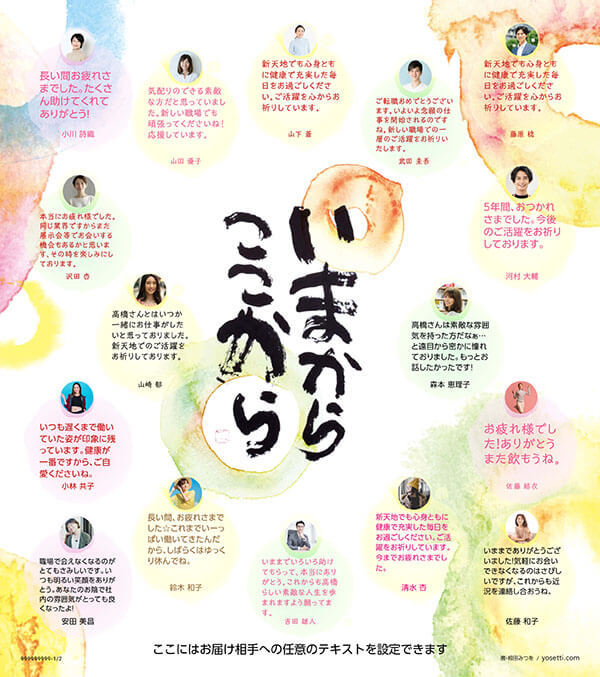 長い間お疲れさ
までした。たくさ
ん助けてくれて
ありがとう!
小川 詩織
気配りのできる素敵
な方だと思っていまし
た。新しい職場でも
頑張ってくださいね!
応援しています。
山田 優子
新天地でも心身とも
に健康で充実した毎
日をお過ごしくださ
い。ご活躍を心からお
祈りしています。
山下 蒼
ご転職おめでとうござい
ます。いよいよ念願の仕
事を開始されるのです
ね。新しい職場での一
層のご活躍をお祈りい
たします。
武田 圭吾
新天地でも心身とも
に健康で充実した毎
日をお過ごしくださ
い。ご活躍を心からお
祈りしています。
藤原 稔
本当にお疲れ様でした。
同じ業界ですからまた
展示会等でお会いする
機会もあるかと思いま
す。その時を楽しみにし
ております。
沢田 杏
5年間、おつかれ
さまでした。今後
のご活躍をお祈り
しております。
河村 大輔
いまから
ここから
高橋さんとはいつか
一緒にお仕事がした
いと思っておりました。
新天地でのご活躍を
お祈りしております。
山崎 郁
高橋さんは素敵な雰囲
気を持った方だなぁ…
と遠目から密かに憧れ
ておりました。もっとお
話したかったです!
森本 恵理子
いつも遅くまで働い
ていた姿が印象に残
っています。健康が
一番ですから、ご自
愛くださいね。
小林 共子
お疲れ様でし
た!ありがとう
また飲もうね。
佐藤 結衣
長い間、お疲れさまで
した☆これまでいーっ
ぱい働いてきたんだ
から、しばらくはゆっく
り休んでね。
鈴木 和子
新天地でも心身ともに
健康で充実した毎日を
お過ごしください。ご活
躍をお祈りしています。
今までお疲れさまでし
た。
清水 杏
職場で会えなくなるのが
とてもさみしいです。い
つも明るい笑顔をありが
とう。あなたのお陰で社
内の雰囲気がとっても良
くなったよ!
安田 美昌
いままでいろいろ助け
てもらって、本当にあり
がとう。これからも高橋
らしい素敵な人生を歩
まれますよう願ってま
す。
吉田 雄人
いままでありがとうござ
いました!気軽にお会い
できなくなるのはさびし
いですが、これからも近
況を連絡し合おうね。
佐藤 和子
ここにはお届け相手への任意のテキストを設定できます
999999999-1/2
書・相田みつを / yosetti.com